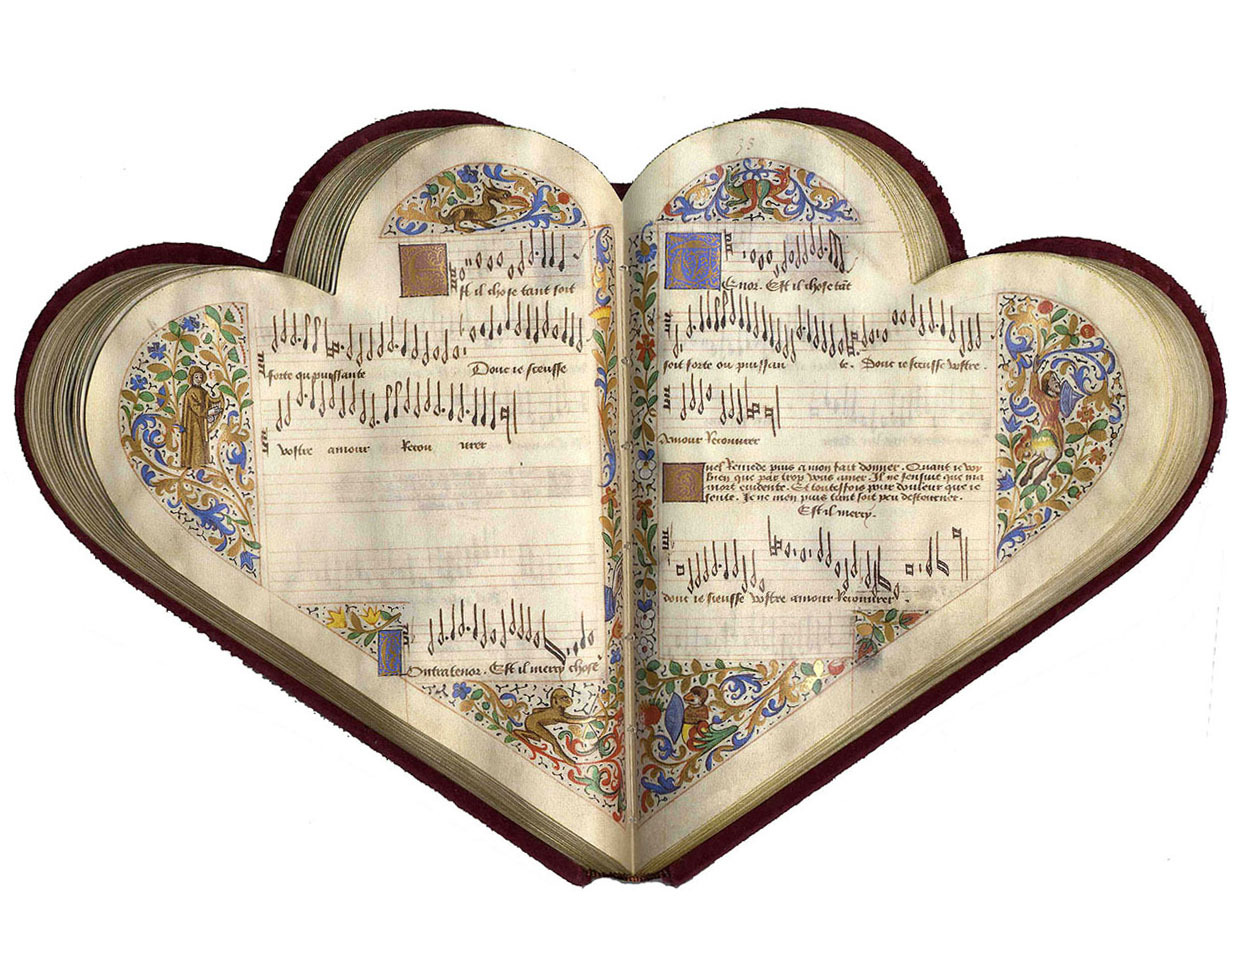 Est il chose tant soit
forte qu puissante Donc ie sceusse
vostre amour Recou urer
Contratenor. Est il mercy chose
33
Tenor. Est il chose tāt
soit forte ou puissan te. Donc ie sceusse vostre.
Amour Recouurer
Quel Remede puis a mon fait donner. Quant ie voy
bien que par trop vous amer. Il ne sensuit que ma
mort euidente. Et toutesfois pour douleur que ie
sente. Je ne men puis tant soit peu destourner.
Est il mercy.
donc ie sceusse vostre amour Recouurer